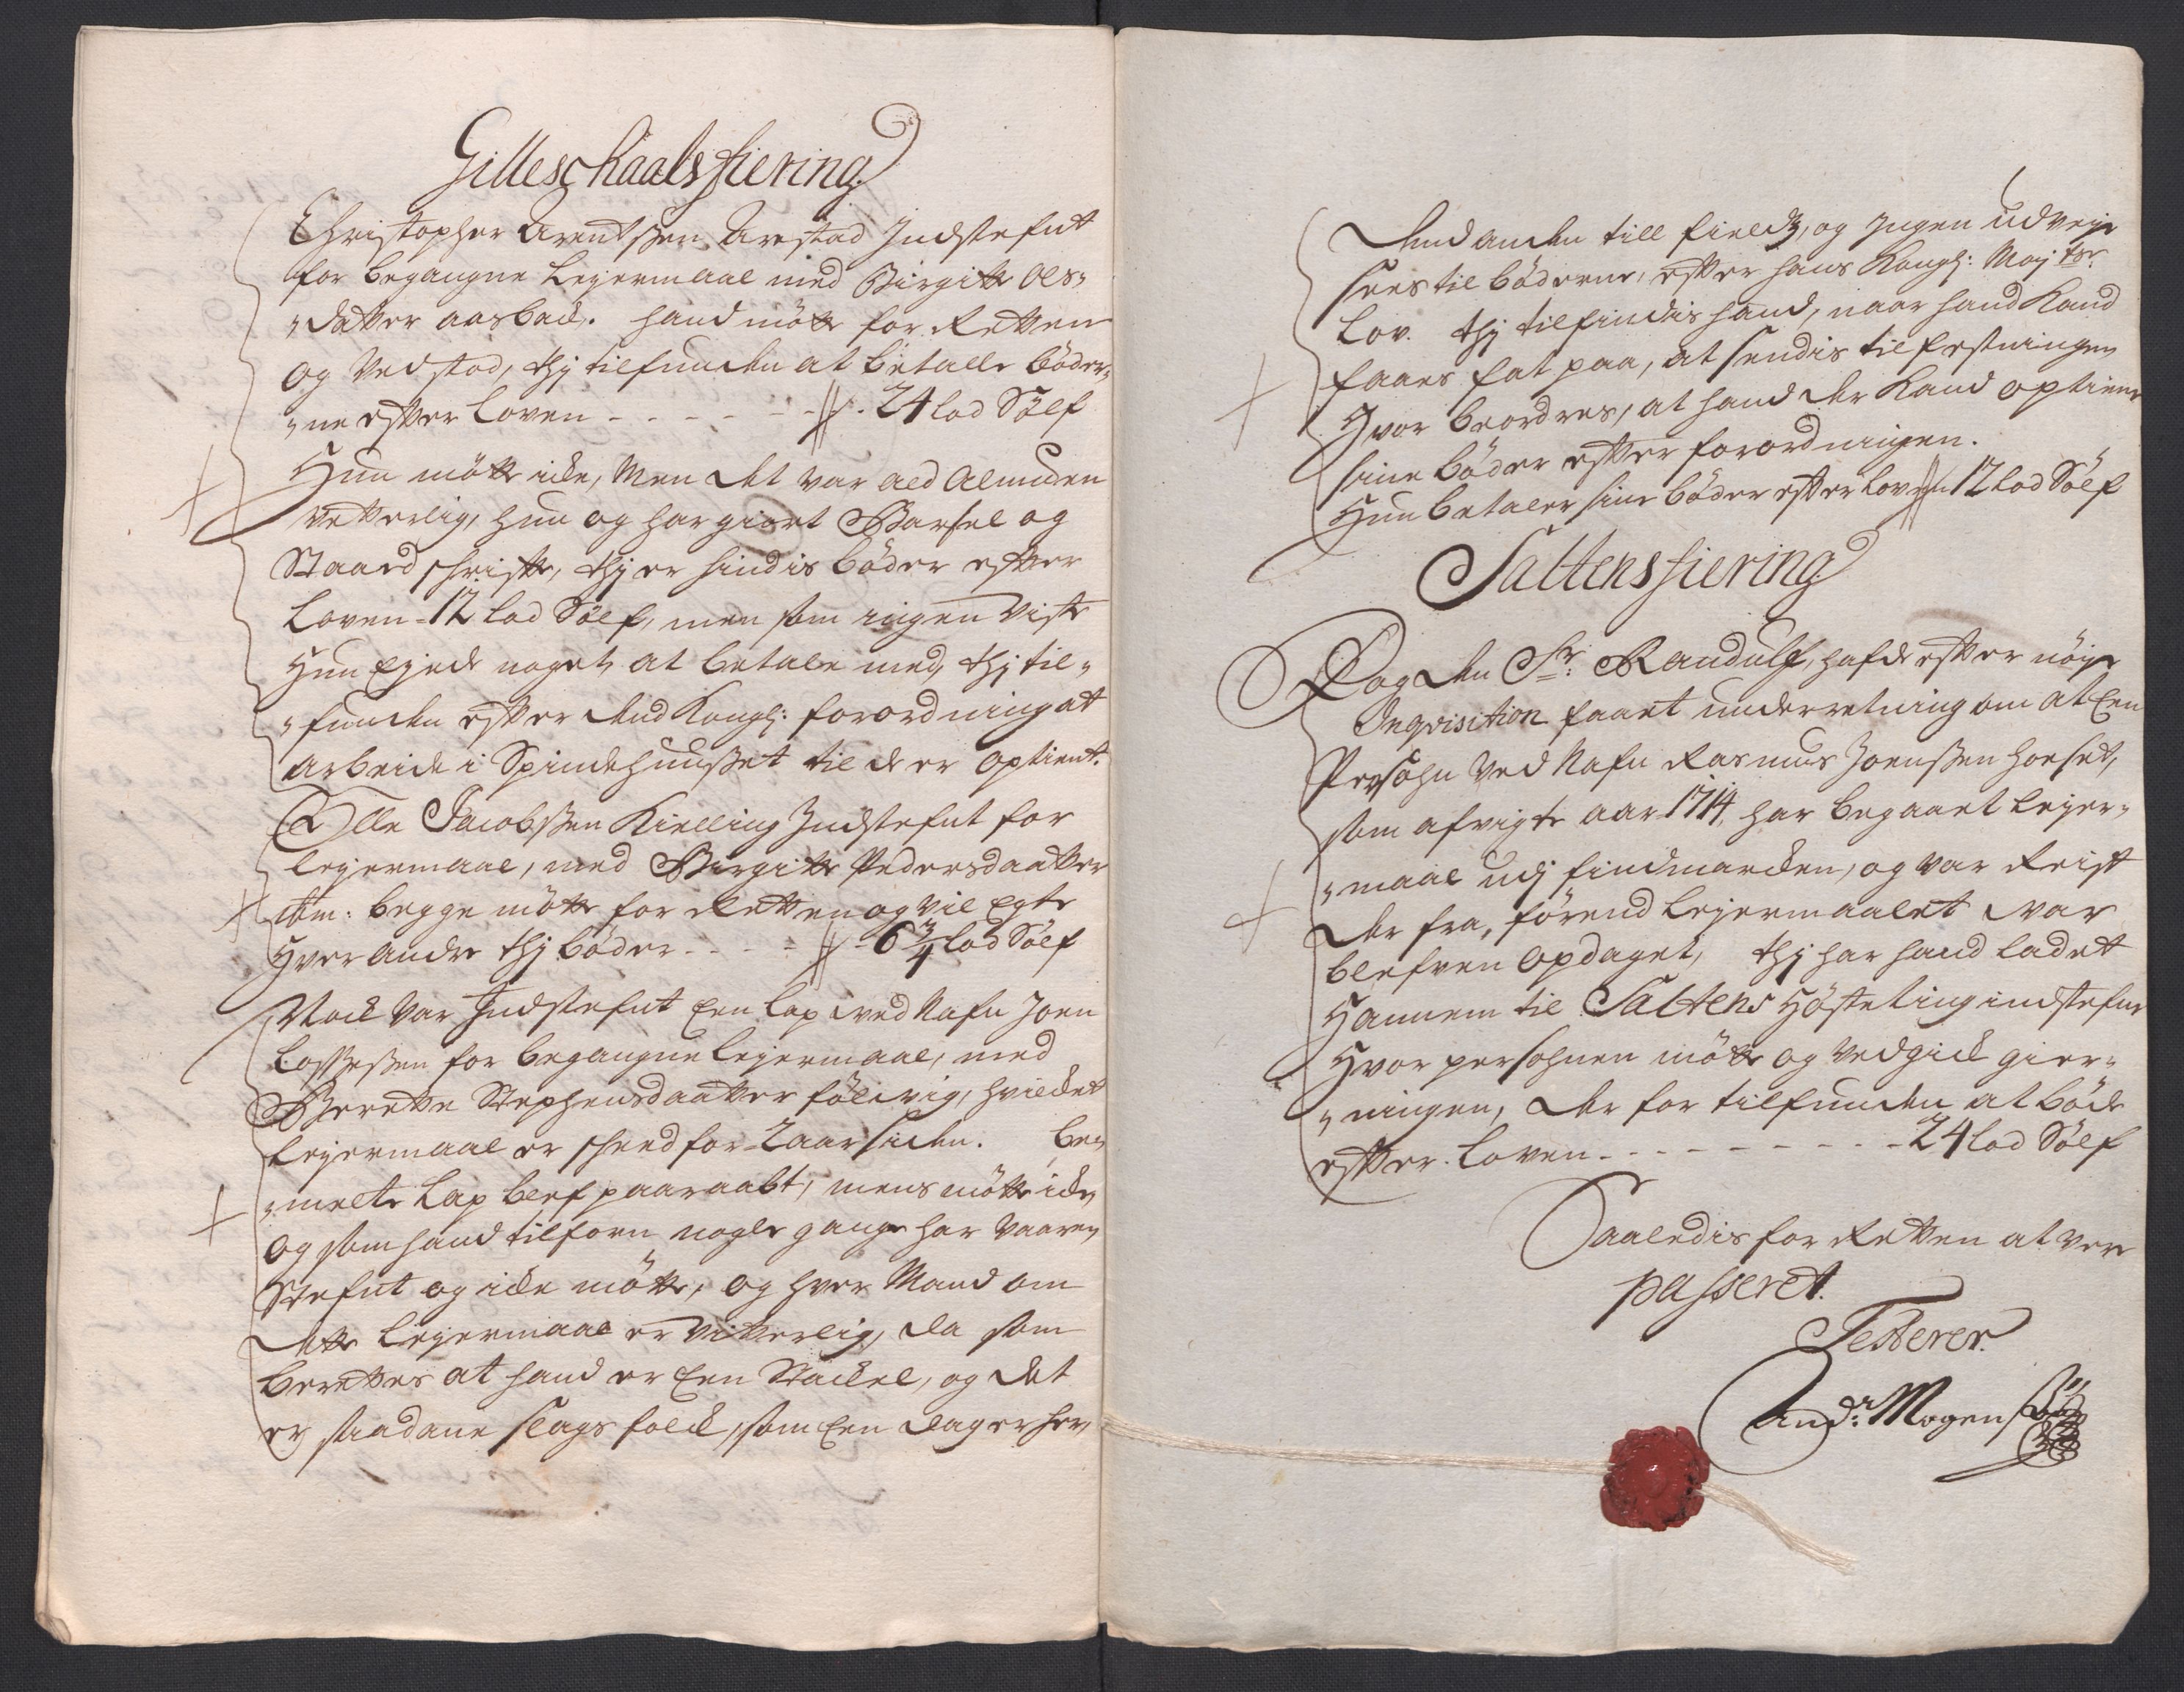 Gilleschaalsfiering
Christopher Arentssen Arestad Indstefnt
for begangne Leyermaal med Birgitte Ols-
"datter aasbach. hand mötte for Retten
og Vedstod, thj tilfunden at betalle böder-
"ne efter Loven - - - - - - - 24 lod Sölf
Hun mötte icke, Men det var ald Almuen
vetterlig, hun og har giort Barsel og
Staaed schrifte, thj er hindis böder efter
Loven - 12 lod Sölf, men som ingen viste
Hun Eyede noget at betale med, thj til-
"funden efter dend Kongl: forordning at
arbeide i Spindehuusset til de er aftient.
Olle Jacobssen Kielling Indstefnt for
leyermaal, med Birgitte Pedersdaatter
ibm: begge mötte for Retten og vil Egte
Hver andre thj böder - - - - 6¾ lod Sölf
Noch var Indstefnt Een Lap ved Nafn Joen
for begangne leyermaal, med
Berette Stephensdaatter hvilcket
leyermaal er scheed for 2 aar siden. be-
"melte Lap blef paaraabt, mens mötte icke
og som hand tilforn nogle gange har vaaren
Stefnt og icke mötte, og hver Mand om
dette leyermaal er vitterlig, da som
berettes at hand er Een Stackel, og det
er saadane slags folck, som Een dag er her,
dend anden till fields, og Ingen udveye
sees til böderne, efter hans Kongl: May:tz
Lov. thj tilfindis hand, naar hand Kand
faaes fat paa, at sendis til festningen
Hvor beordres, at hand der Kand aftiene
sine böder efter forordningen.
Hun betaler sine böder efter Loven 12 lod Sölf
Saltensfiering
Fogden Sr: Randulf, hafde efter nöye
Inqvisition faaet underretning om at Een
Persohn ved Nafn Rasmus Joenssen
som afvigte aar 1714, har begaaet leyer-
"maal udj findmarcken, og var Reist
der fra, förend leyermaalet var
blefven opdaget, thj har hand ladet
Hannem til Saltens Hösteting indstefne
Hvor persohnen mötte og vedgick gier-
"ningen, der for tilfunden at böde
efter Loven - - - - - - - - 24 lod Sölf
Saaledis for Retten at vere
passeret.
Testerer.
And: Mogenss: